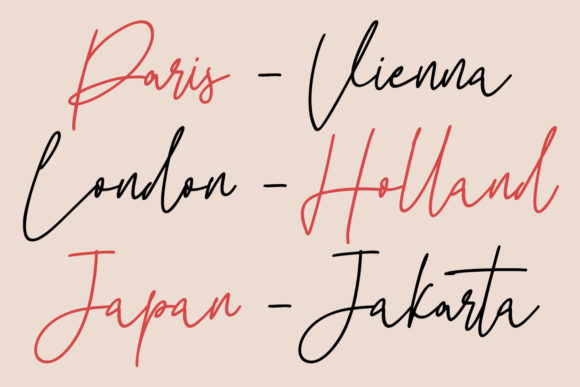 Paris - Vienna
London - Holland
Japan - Jakarta